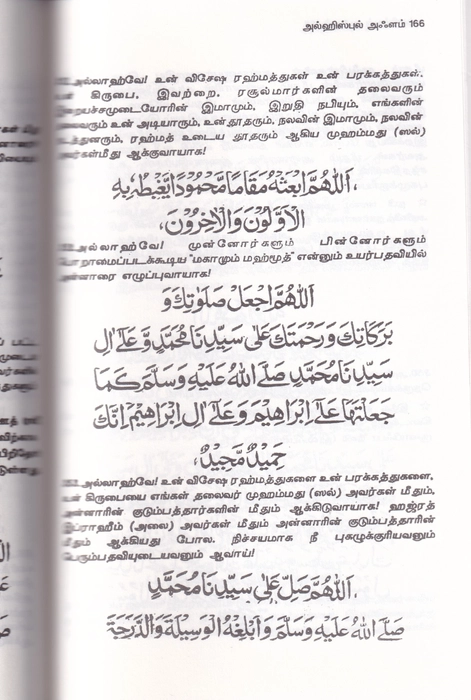 அல்ஹிஸ்புல் அஃளம் 166
அல்லாஹ்வே! உன் விசேஷ ரஹ்மத்துகள் உன் பரக்கத்துகள்,
கிருபை, இவற்றை, ரசூல்மார்களின் தலைவரும்
இமாமும், இறுதி நபியும், எங்களின்
உன் அடியாரும், உன் தூதரும், நலவின் இமாமும், நலவின்
ரஹ்மத் உடைய தூதரும் ஆகிய முஹம்மது (ஸல்)
ஆக்குவாயாக!
اَللّٰهُمَّ ابْعَثْهُ مَقَامًا مَّحْمُوْدًا يَّغْبِطُهٗ بِهِ
الْاَوَّلُوْنَ وَالْاٰخِرُوْنَ،
அல்லாஹ்வே! முன்னோர்களும் பின்னோர்களும்
பொறாமைப்படக்கூடிய "மகாமும் மஹ்மூத்" என்னும் உயர்பதவியில்
அன்னாரை எழுப்புவாயாக!
اَللّٰهُمَّ اجْعَلْ صَلَوٰتِكَ وَ
بَرَكَاتِكَ وَرَحْمَتَكَ عَلٰى سَيِّدِنَا مُحَمَّدٍ وَّعَلٰٓى اٰلِ
سَيِّدِنَا مُحَمَّدٍ صَلَّى اللهُ عَلَيْهِ وَسَلَّمَ كَمَا
جَعَلْتَهَا عَلٰٓى اِبْرَاهِيْمَ وَعَلٰٓى اٰلِ اِبْرَاهِيْمَ اِنَّكَ
حَمِيْدٌ مَّجِيْدٌ،
அல்லாஹ்வே! உன் விசேஷ ரஹ்மத்துகளை உன் பரக்கத்துகளை,
உன் கிருபையை எங்கள் தலைவர் முஹம்மது (ஸல்) அவர்கள் மீதும்,
அன்னாரின் குடும்பத்தார்களின் மீதும் ஆக்கிடுவாயாக! ஹஜ்ரத்
இப்ராஹீம் (அலை) அவர்கள் மீதும் அன்னாரின் குடும்பத்தாரின்
மீதும் ஆக்கியது போல. நிச்சயமாக நீ புகழுக்குரியவனும்
பெரும்பதவியுடையவனும் ஆவாய்!
اَللّٰهُمَّ صَلِّ عَلٰى سَيِّدِنَا مُحَمَّدٍ،
صَلَّى اللهُ عَلَيْهِ وَسَلَّمَ وَاَبْلِغْهُ الْوَسِيْلَةَ وَالدَّرَجَةَ